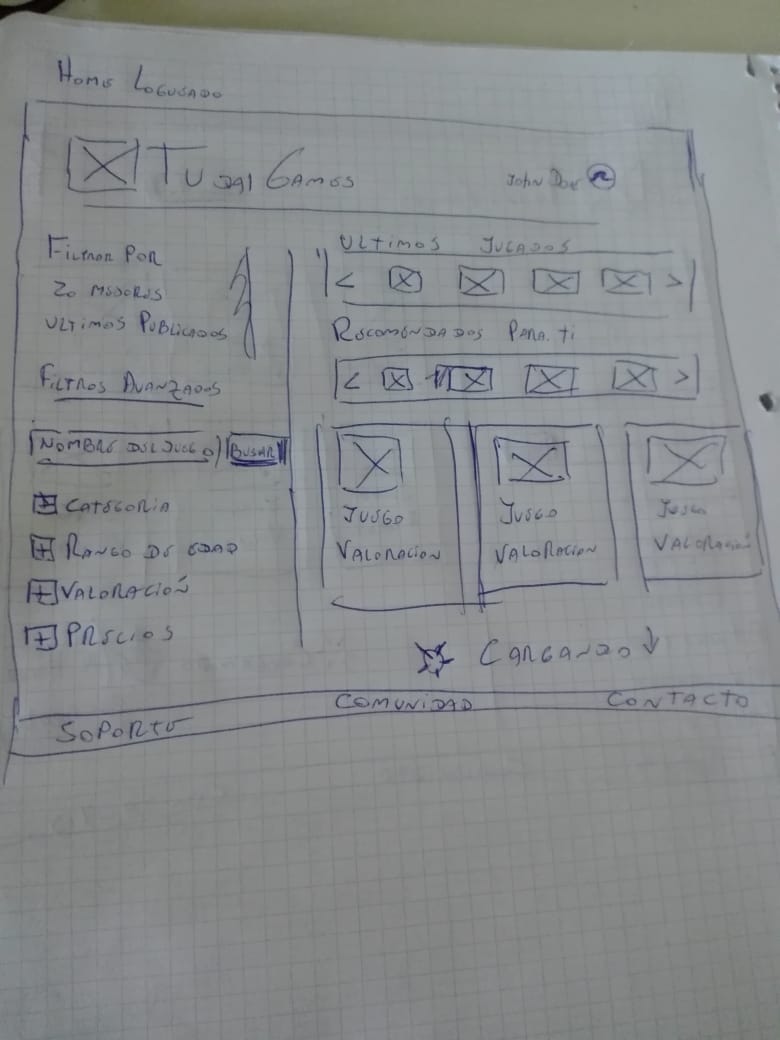 Home Logueado
Tudai Games
John Doe
Filtrar Por
20 mejores
Ultimos Publicados
Filtros Avanzados
Nombre del Juego
Buscar
+ Categoria
+ Rango de edad
+ Valoración
+ Precios
Ultimos Jugados
< >
Recomendados Para Ti
< >
Juego
Valoracion
Juego
Valoracion
Juego
Valoración
Cargando ↓
Soporte
Comunidad
Contacto